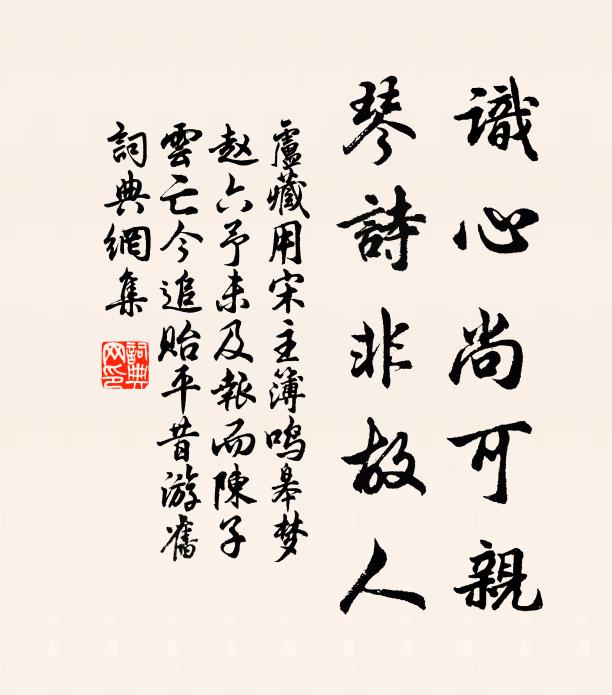 識心尚可親
琴詩非故人
盧藏用宋主簿鸣皋梦
赵六予未及報而陳子
雲亡今追貽平昔游舊
詞典網集
詞典
网印